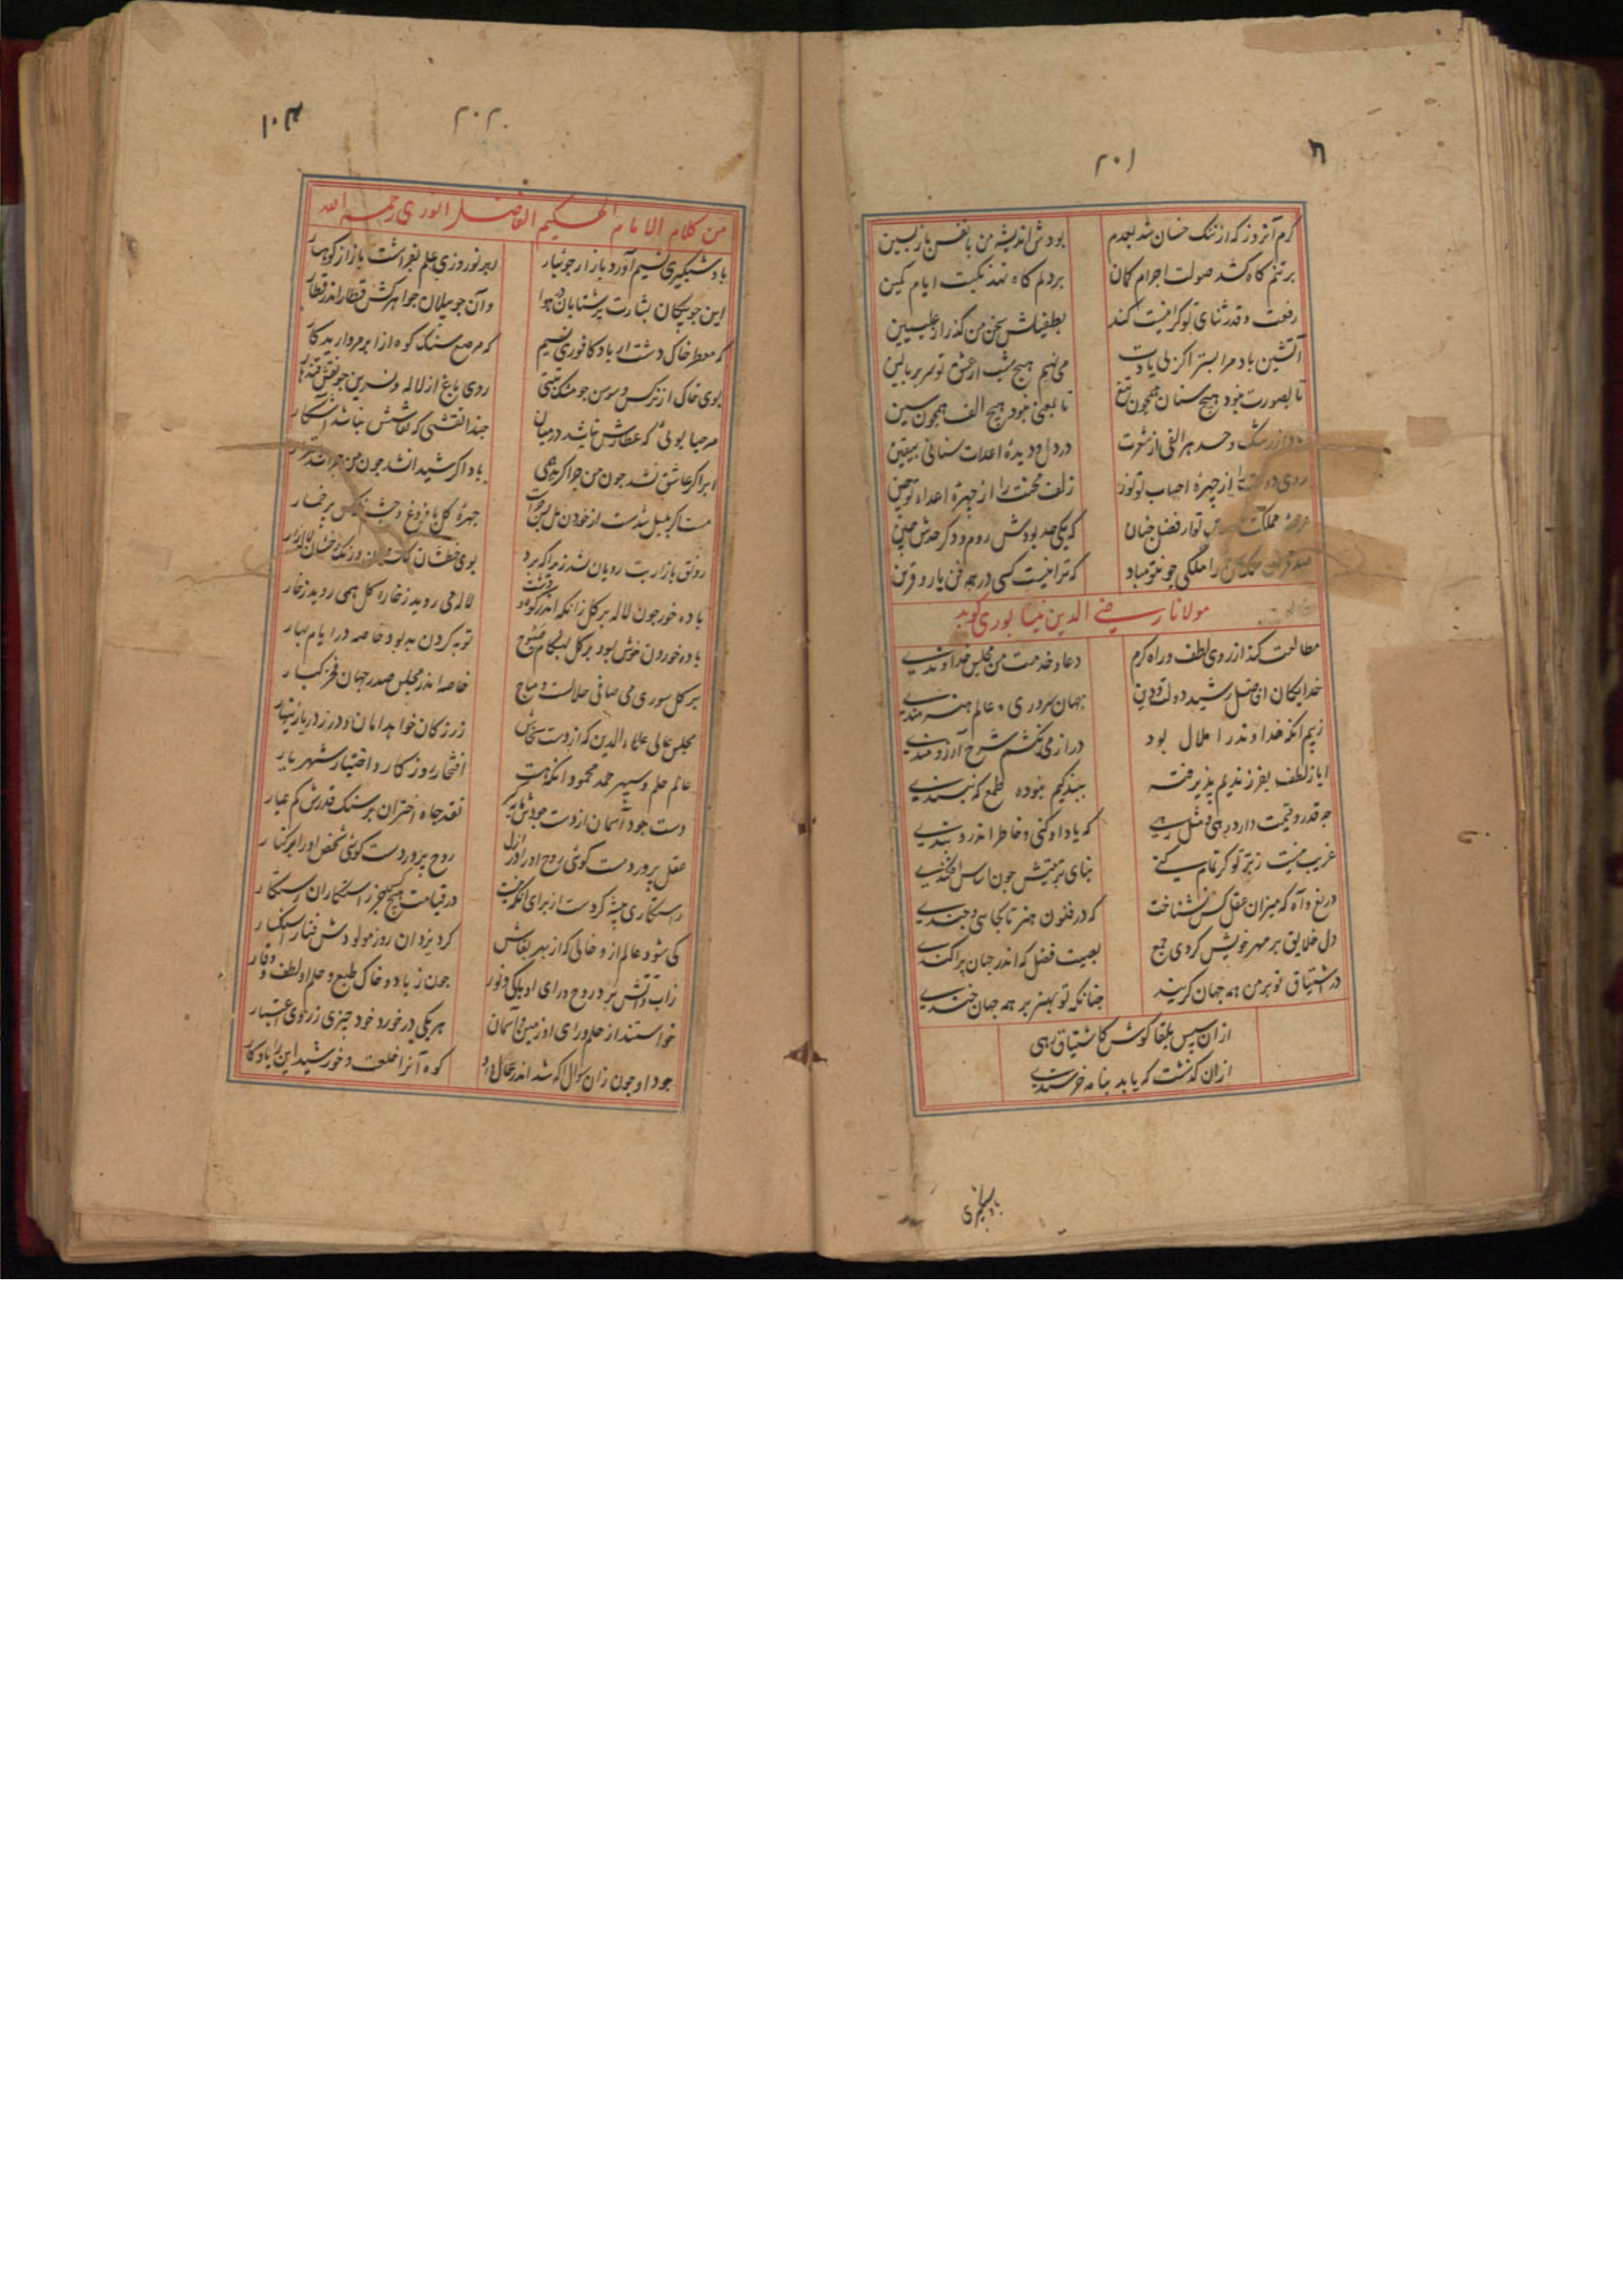 ۲۰۱
کرم آنروز که از ننک خسان شد بعدم بودش اندیشهٔ من با نفس بازپسین
بر تنم کاه کشد صولت اجرام کمان بر دلم کاه نهد نکبت ایام کمین
رفعت و قدر ثنای تو کرامیت کند بطفیلش سخن من کذرد از علیین
آتشین باد مرا بستر اکر بی یادت می نهم هیچ شب از عشق تو سر بر بالین
تا بصورت نبود هیچ سنان همچون تیغ تا بمعنی نبود هیچ الف همچون سین
از رشک و حسد هر الفی از شعرت در دل و دیدهٔ اعدات سنانی بیقین
روی دولت را از چهرهٔ احباب تو نور زلف محنت را از چهرهٔ اعداء تو چین
مملکت تو از فضل چنان که یکی حد بودش روم و دکر حدش چین
را ملکی چو تو مباد که ترا نیست کسی در همه فن یار و قرین
مولانا رضی الدین نیشابوری کوید
مطالعت کند از روی لطف و راه کرم دعا و خدمت من مجلس خداوندی
خدایکان افاضل رشید دولت و دین جهان سروری و عالم هنرمندی
ز بیم آنکه خداوند را ملال بود دراز می نکشم شرح آرزومندی
ایا ز لطف بفرزندیم پذیرفته ببندکیم نبوده طمع که بپسندی
چه قدر و قیمت دارد رهی و مثل رهی که یاد او کنی و خاطر اندرو بندی
غریب نیست ز تو کر تمام کنی بنای تربیتش چون اساس افکندی
دریغ و آه که میزان عقل کس نشناخت که در فنون هنر تا کجایی و چندی
دل خلایق بر مهر خویش کردی جمع بصیت فضل که اندر جهان پراکندی
در اشتیاق تو بر من همه جهان کریند چنانکه تو بهنر بر همه جهان خندی
ازان سپس بلقا کوش کاشتیاق رهی
ازان کذشت که یابد بنامه خرسندی
باد شبکیری
۲۰۲
من کلام الامام الحکیم الفاضل انوری رحمه الله
باد شبکیری نسیم آورد باز از جویبار ابر نوروزی علم بفراشت باز از کوهسار
این چو پیکان بشارت بر شتابان در هوا وآن چو پیلان جواهرکش قطار اندر قطار
که معطر خاک دشت از باد کافوری نسیم که مرصع سنک کوه از ابر مروارید کار
بوی خاک از نرکس و سوسن چو مشک تبتی روی باغ از لاله و نسرین چو نقش قندهار
مرحبا بویی که عطارش نباشد در میان حبذا نقشی که نقاشش نباشد آشکار
ابر اکر عاشق نشد چون من چرا کرید همی باد اکر شیدا نشد چون من چرا شد
مست اکر بلبل شدست از خوردن مل پس چراست چهرهٔ کل با فروغ و چشم نرکس پر خمار
رونق بازار بت رویان بشد زیرا که برد بوی خطشان و رنک رخشان لاله زار
باده خور چون لاله بر کل زانکه اندر کوه و دشت لاله می روید ز خارا کل همی روید ز خار
باده خوردن خوش بود بر کل بهنکام صبوح توبه کردن بد بود خاصه در ایام بهار
بر کل سوری می صافی حلالست و مباح خاصه اندر مجلس صدر جهان فخر کبار
مجلس عالی علاء الدین که از دست سخاش زر ز کان خواهد امان و در ز دریا زینهار
عالم حلم و سپهر حمد محمود آنکه هست افتخار روزکار و اختیار شهریار
دست جود آسمان از دست جودش مایه کیر نقد جاه اختران بر سنک قدرش کم عیار
عقل پروردست کوئی روح او را در ازل روح پروردست کوئی شخص او را بر کنار
رستکاری پیشه کردست از برای آنکه نیست در قیامت هیچ کس جز رستکاران رستکار
کی شود عالم ازو خالی که از بهر بقاش کرد یزدان روز مولودش
زاب و آتش برد روح و رای او پاکی و نور چون ز باد و خاک طبع و حلم او لطف و وقار
خواستند از حلم و رای او زمین و آسمان هر یکی در خورد خود چیزی ز روی اعتبار
جود او چون زان سوال اکه شد اندر حال داد کوه آنرا خلعت و خورشید این را یادکار